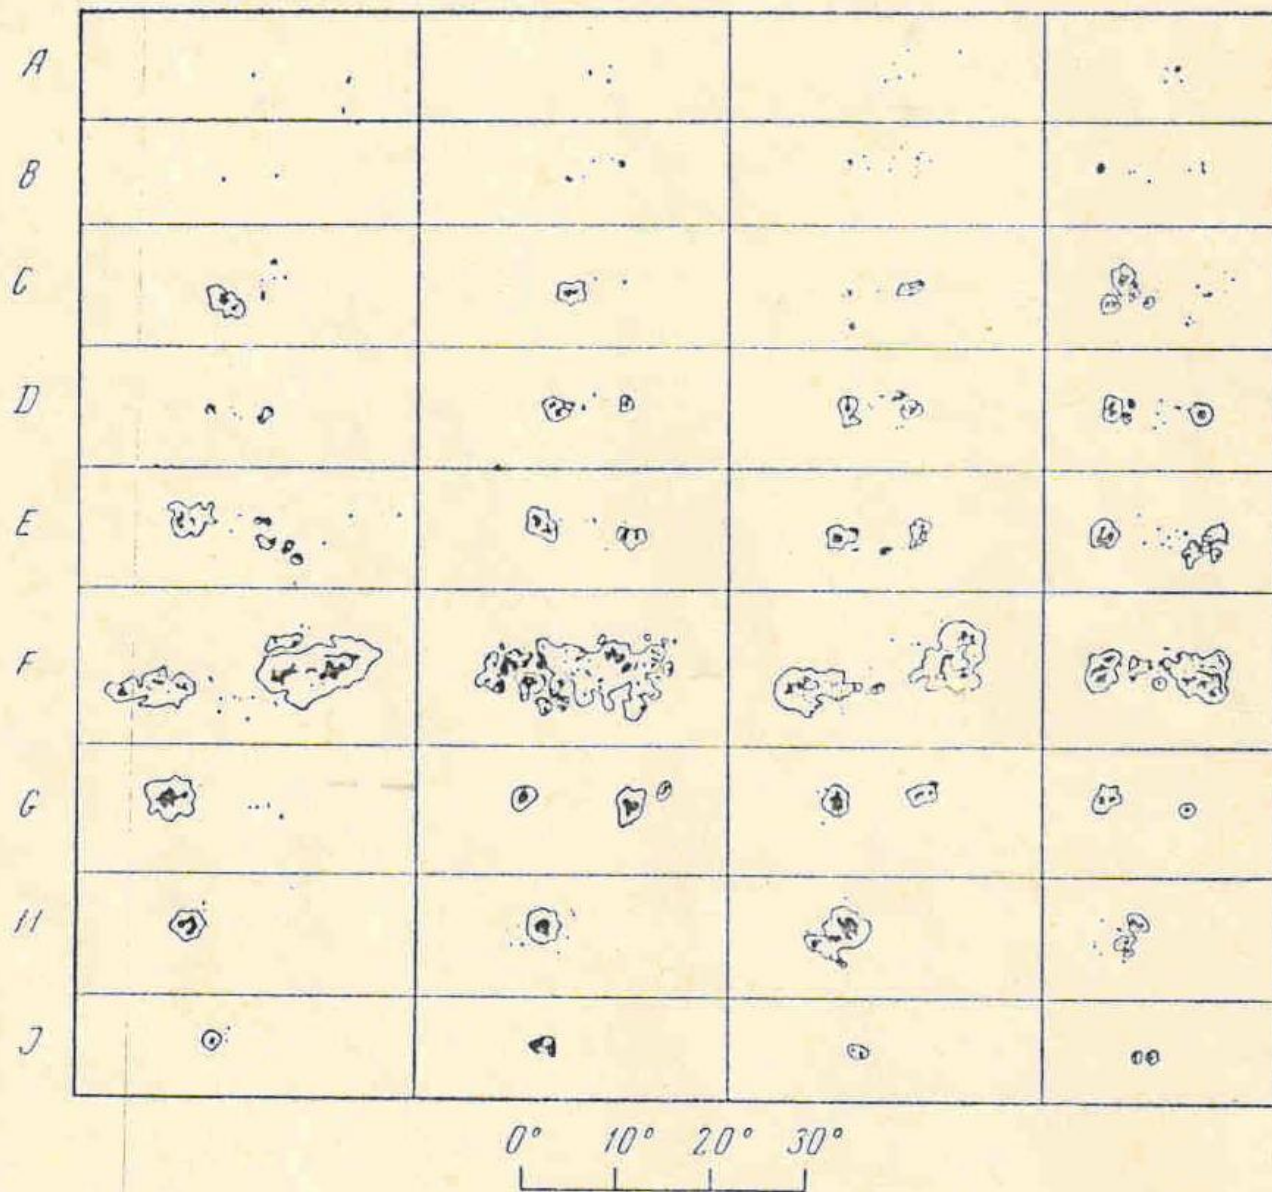 A
B
C
D
E
F
G
H
J
0° 10° 20° 30°